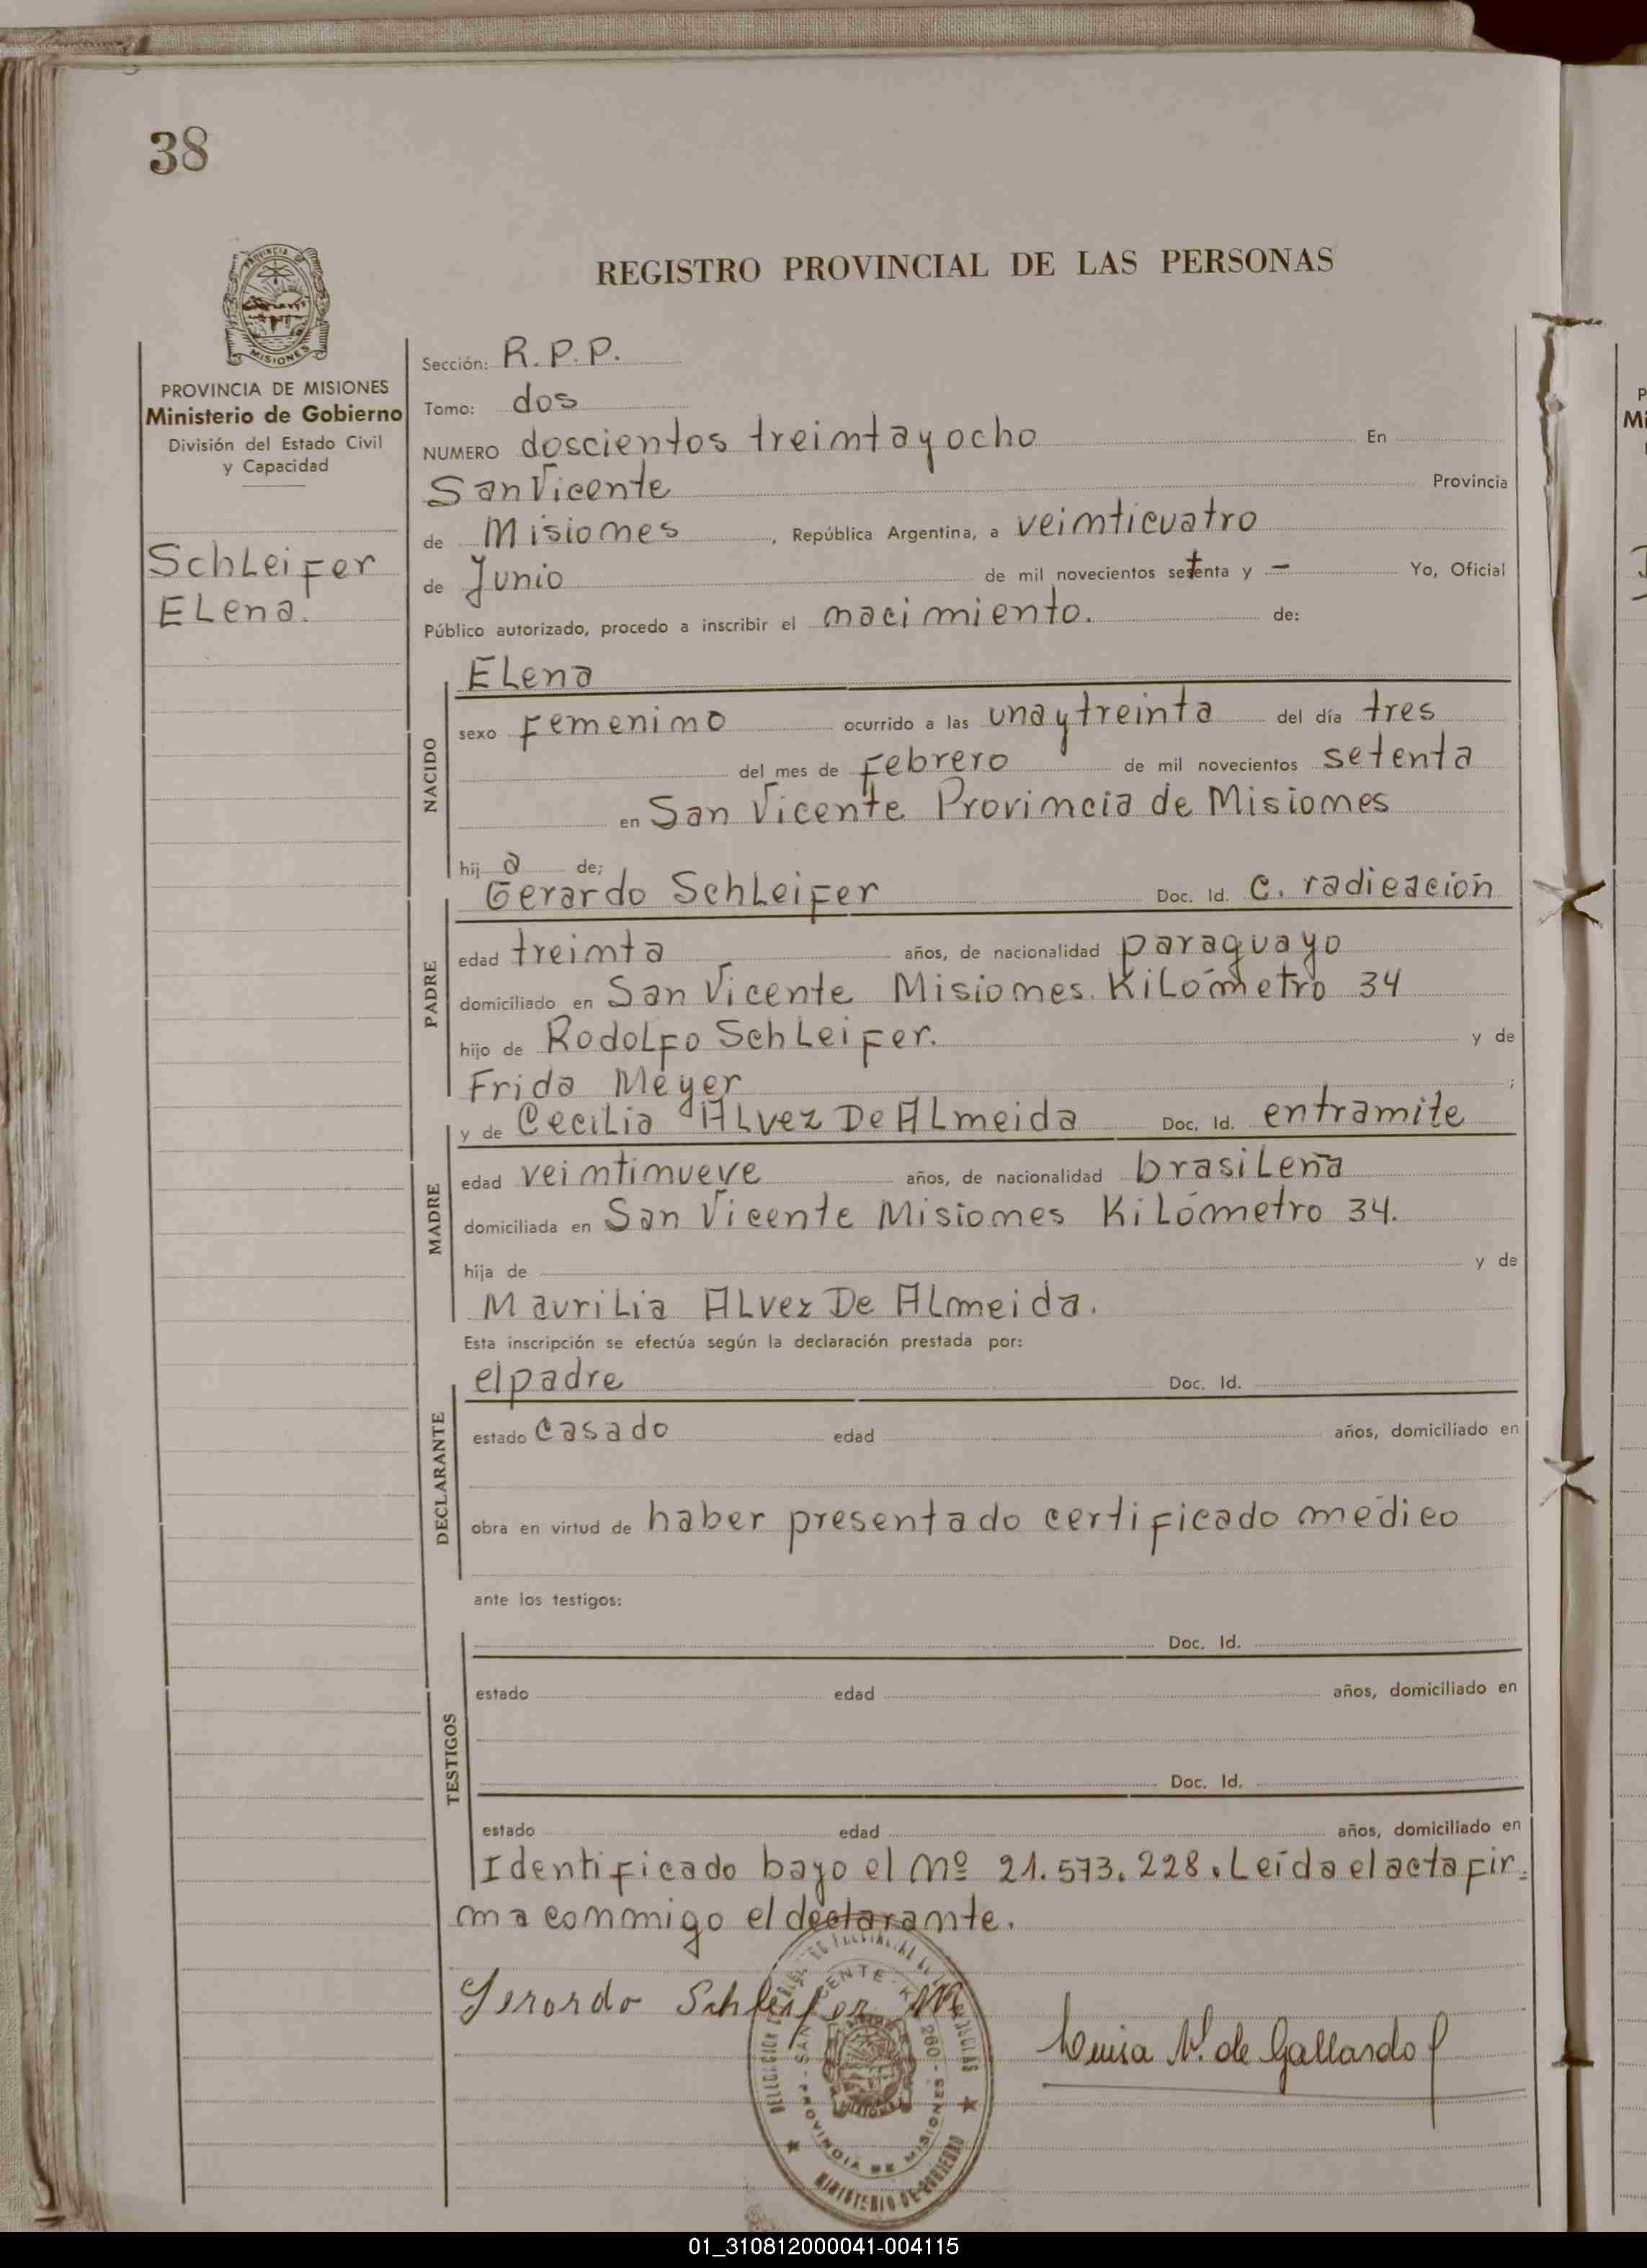 38
REGISTRO PROVINCIAL DE LAS PERSONAS
MISIONES
PROVINCIA DE MISIONES
Ministerio de Gobierno
División del Estado Civil
y Capacidad
Schleifer
Elena.
Sección: R.P.P.
Tomo: dos
NUMERO doscientos treinta y ocho En
San Vicente Provincia
de Misiones, República Argentina, a veinticuatro
de Junio de mil novecientos setenta y - Yo, Oficial
Público autorizado, procedo a inscribir el nacimiento. de:
NACIDO
Elena
sexo femenino ocurrido a las una y treinta del día tres
del mes de febrero de mil novecientos setenta
en San Vicente Provincia de Misiones
hij a de;
PADRE
Gerardo Schleifer Doc. Id. C. radicación
edad treinta años, de nacionalidad paraguayo
domiciliado en San Vicente Misiones. Kilómetro 34
hijo de Rodolfo Schleifer. y de
Frida Meyer ;
MADRE
y de Cecilia Alvez De Almeida Doc. Id. en tramite
edad veintinueve años, de nacionalidad brasileña
domiciliada en San Vicente Misiones Kilómetro 34.
hija de y de
Maurilia Alvez De Almeida.
Esta inscripción se efectúa según la declaración prestada por:
DECLARANTE
el padre Doc. Id.
estado casado edad años, domiciliado en
obra en virtud de haber presentado certificado médico
ante los testigos:
TESTIGOS
Doc. Id.
estado edad años, domiciliado en
Doc. Id.
estado edad años, domiciliado en
Identificado bajo el Nº 21.573.228. Leída el acta fir=
ma conmigo el declarante.
Gerardo Schleifer
Luisa V. de Gallardo
SAN VICENTE
PROVINCIA DE MISIONES
MINISTERIO DE GOBIERNO
01_310812000041-004115